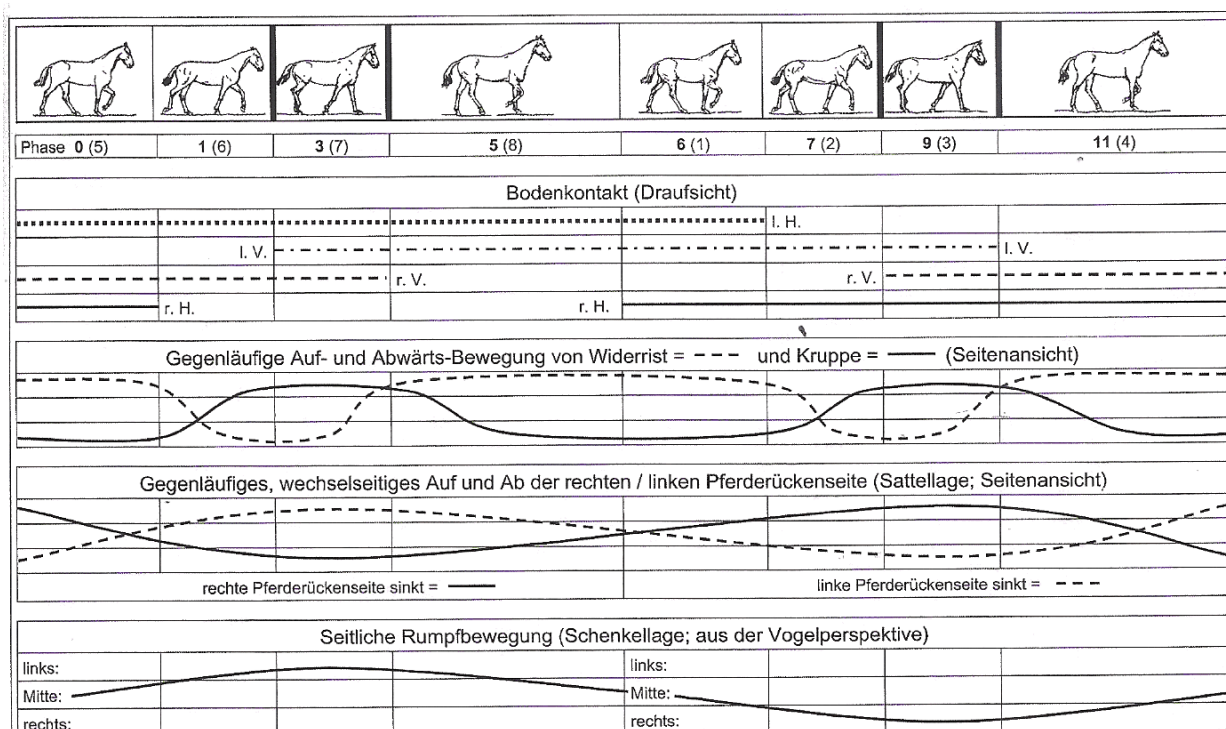 Phase 0 (5) 1 (6) 3 (7) 5 (8) 6 (1) 7 (2) 9 (3) 11 (4)
Bodenkontakt (Draufsicht)
l. H.
l. V. l. V.
r. V. r. V.
r. H. r. H.
Gegenläufige Auf- und Abwärts-Bewegung von Widerrist = und Kruppe = (Seitenansicht)
Gegenläufiges, wechselseitiges Auf und Ab der rechten / linken Pferderückenseite (Sattellage; Seitenansicht)
rechte Pferderückenseite sinkt = linke Pferderückenseite sinkt =
Seitliche Rumpfbewegung (Schenkellage; aus der Vogelperspektive)
links: links:
Mitte: Mitte:
rechts: rechts: